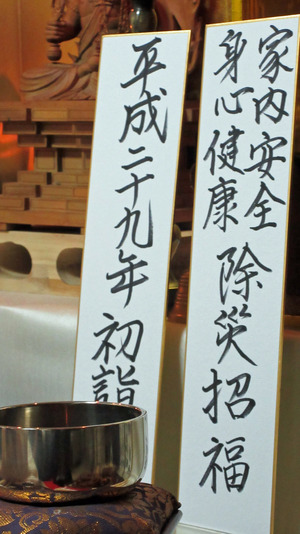 家内安全
身心健康
除災招福
平成二十九年 初詣